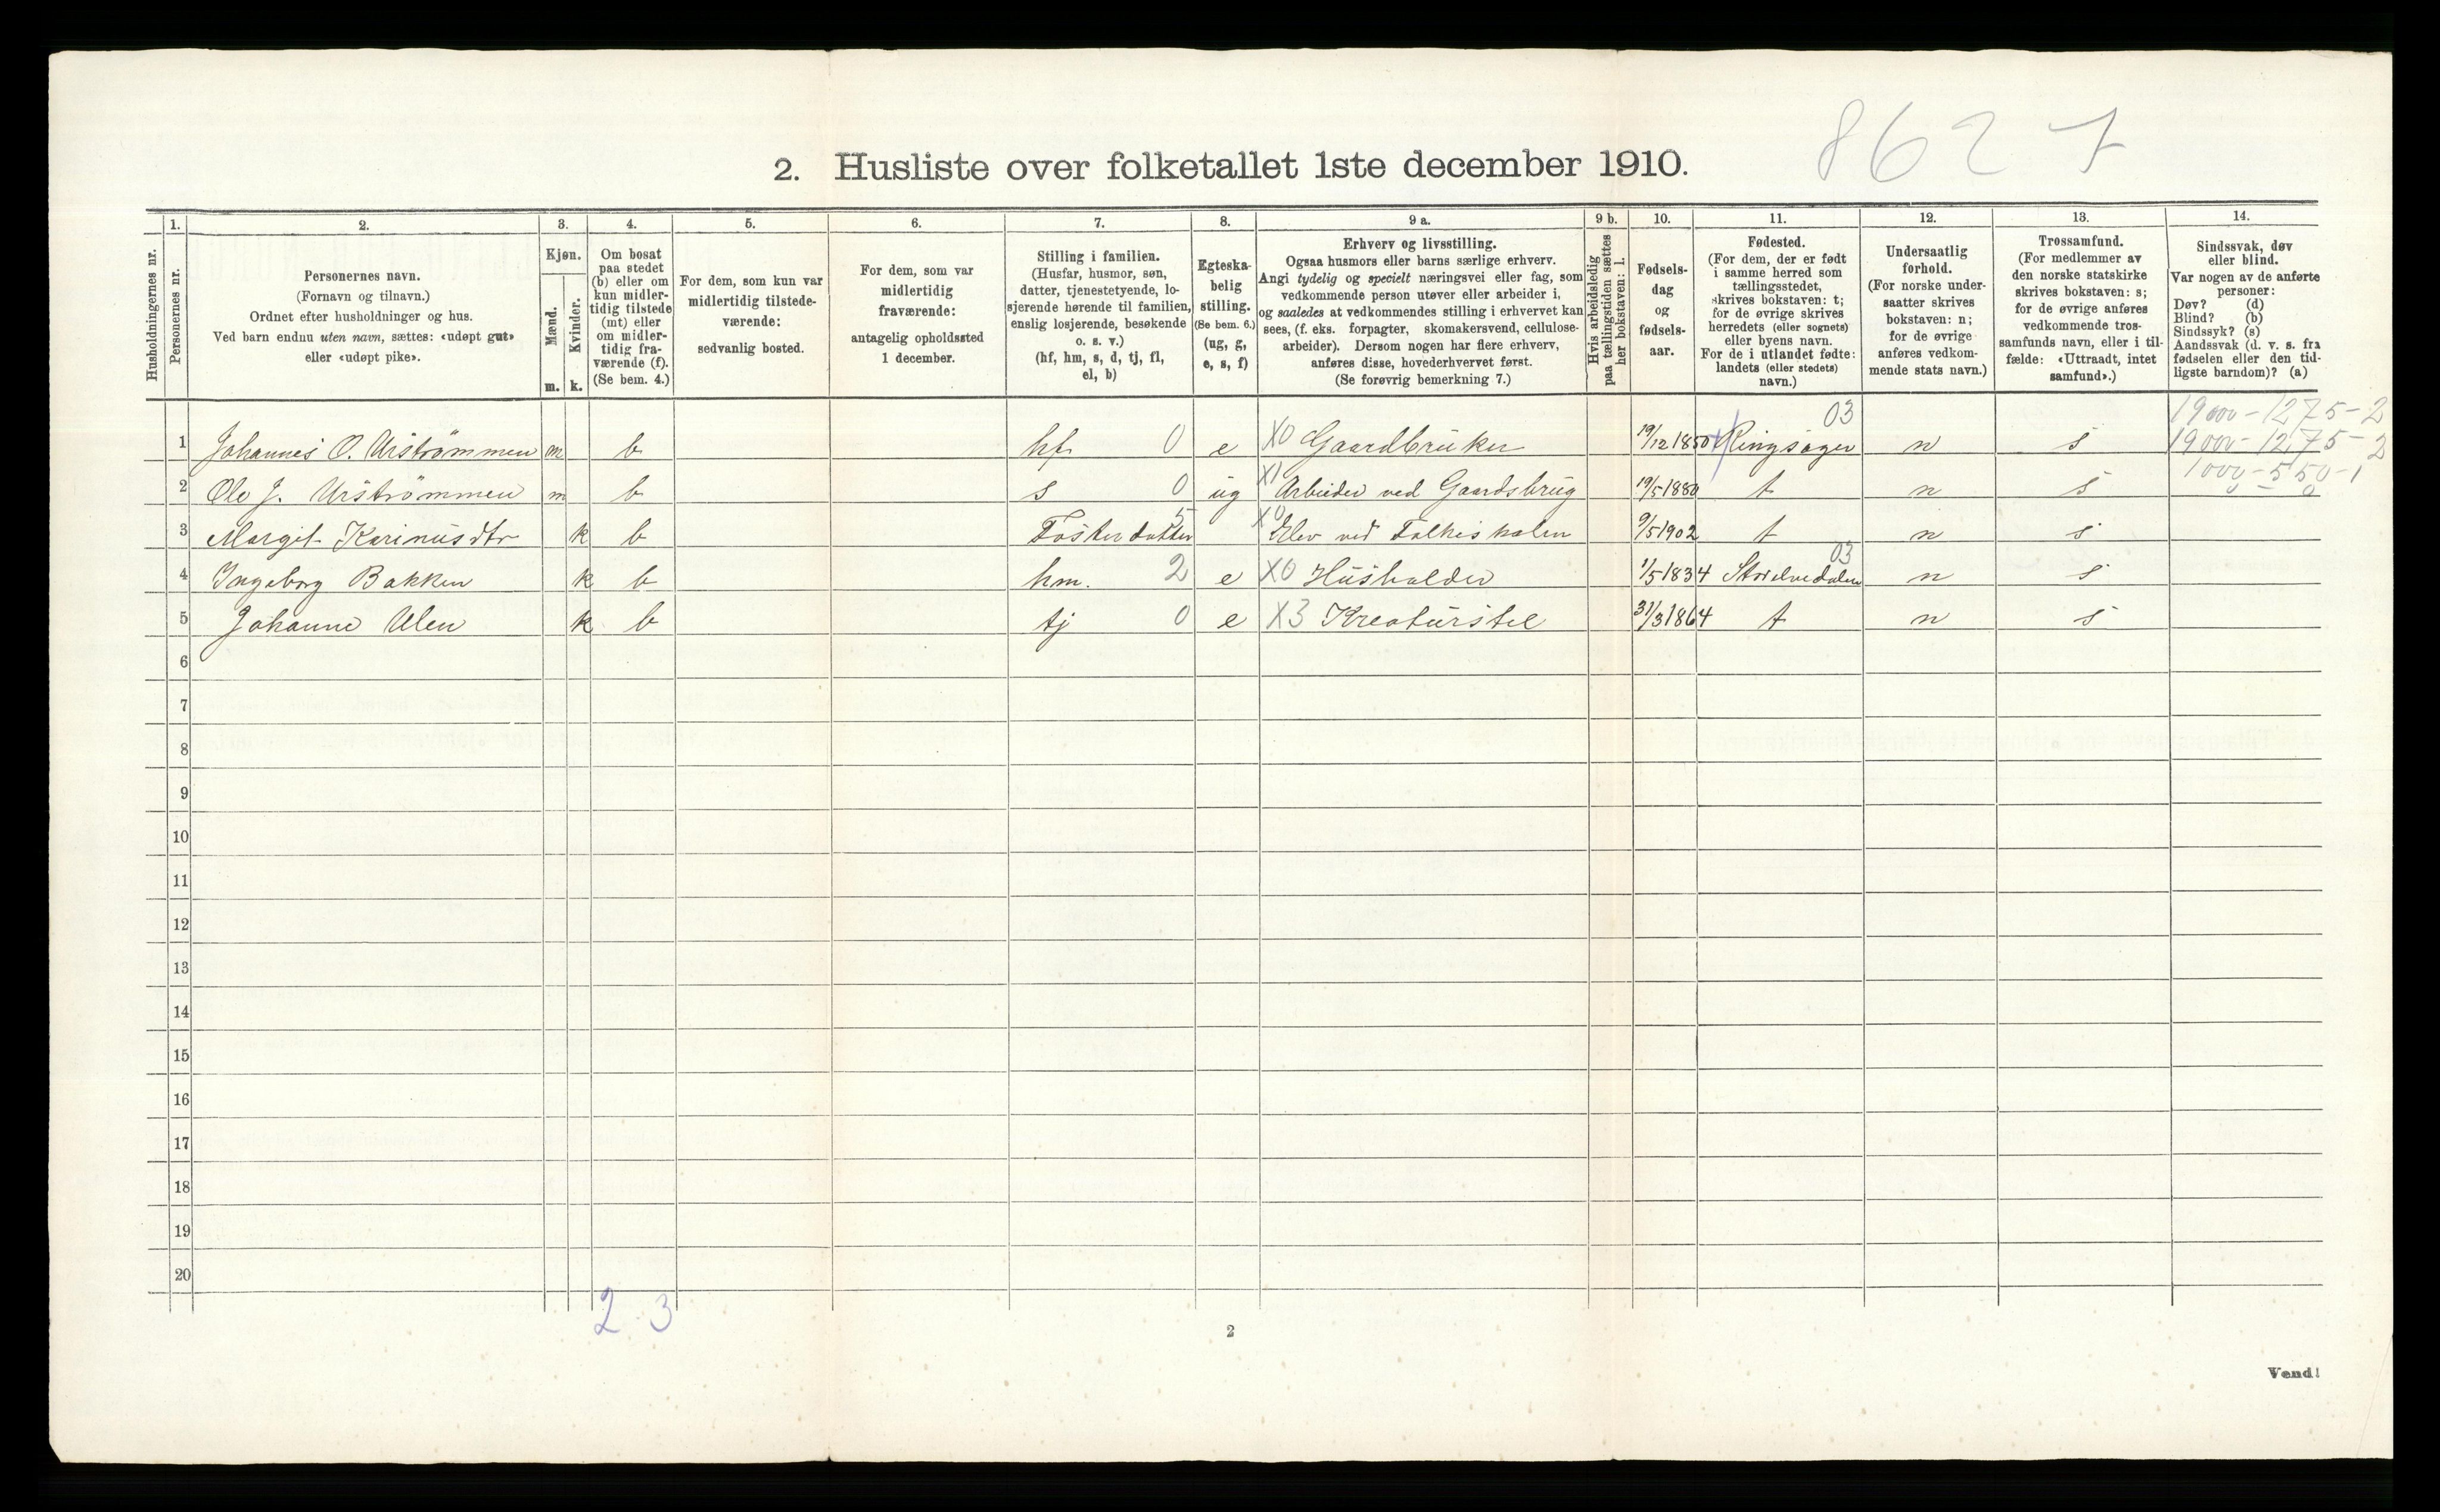 8627
2. Husliste over folketallet 1ste december 1910.
Husholdningernes nr.
1.
Personernes nr.
2.
Personernes navn.
(Fornavn og tilnavn.)
Ordnet efter husholdninger og hus.
Ved barn endnu uten navn, sættes: «udøpt gut»
eller «udøpt pike».
3.
Kjøn.
Mænd.
Kvinder.
m. k.
4.
Om bosat
paa stedet
(b) eller om
kun midler-
tidig tilstede
(mt) eller
om midler-
tidig fra-
værende (f).
(Se bem. 4.)
5.
For dem, som kun var
midlertidig tilstede-
værende:
sedvanlig bosted.
6.
For dem, som var
midlertidig
fraværende:
antagelig opholdssted
1 december.
7.
Stilling i familien.
(Husfar, husmor, søn,
datter, tjenestetyende, lo-
sjerende hørende til familien,
enslig losjerende, besøkende
o. s. v.)
(hf, hm, s, d, tj, fl,
el, b)
8.
Egteska-
belig
stilling.
(Se bem. 6.)
(ug, g,
e, s, f)
9 a.
Erhverv og livsstilling.
Ogsaa husmors eller barns særlige erhverv.
Angi tydelig og specielt næringsvei eller fag, som
vedkommende person utøver eller arbeider i,
og saaledes at vedkommendes stilling i erhvervet kan
sees, (f. eks. forpagter, skomakersvend, cellulose-
arbeider). Dersom nogen har flere erhverv,
anføres disse, hovederhvervet først.
(Se forøvrig bemerkning 7.)
9 b.
Hvis arbeidsledig
paa tællingstiden sættes
her bokstaven: l.
10.
Fødsels-
dag
og
fødsels-
aar.
11.
Fødested.
(For dem, der er født
i samme herred som
tællingsstedet,
skrives bokstaven: t;
for de øvrige skrives
herredets (eller sognets)
eller byens navn.
For de i utlandet fødte:
landets (eller stedets)
navn.)
12.
Undersaatlig
forhold.
(For norske under-
saatter skrives
bokstaven: n;
for de øvrige
anføres vedkom-
mende stats navn.)
13.
Trossamfund.
(For medlemmer av
den norske statskirke
skrives bokstaven: s;
for de øvrige anføres
vedkommende tros-
samfunds navn, eller i til-
fælde: «Uttraadt, intet
samfund».)
14.
Sindssvak, døv
eller blind.
Var nogen av de anførte
personer:
Døv? (d)
Blind? (b)
Sindssyk? (s)
Aandssvak (d. v. s. fra
fødselen eller den tid-
ligste barndom)? (a)
03 19000-1275-2
1 Johannes O. Urströmmen m b hf 0 e X0 Gaardbruker 19/12 1850 Ringsager n s 19000-1275-2
1000-550-1
2 Ole J. Urströmmen m b s 0 ug X1 Arbeider ved Gaardsbrug 19/5 1880 t n s
3 Margit Karinusdtr k b Fosterdatter 5 X0 Elev ved Folkeskolen 9/5 1902 t n s
4 Ingeborg Bakken k b hm. 2 e X0 Husholder 1/5 1834 Storelvedalen 03 n s
5 Johanne Ulen k b tj 0 e X3 Kreaturstel 31/3 1864 t n s
6
7
8
9
10
11
12
13
14
15
16
17
18
19
20
2 3
2
Vend!